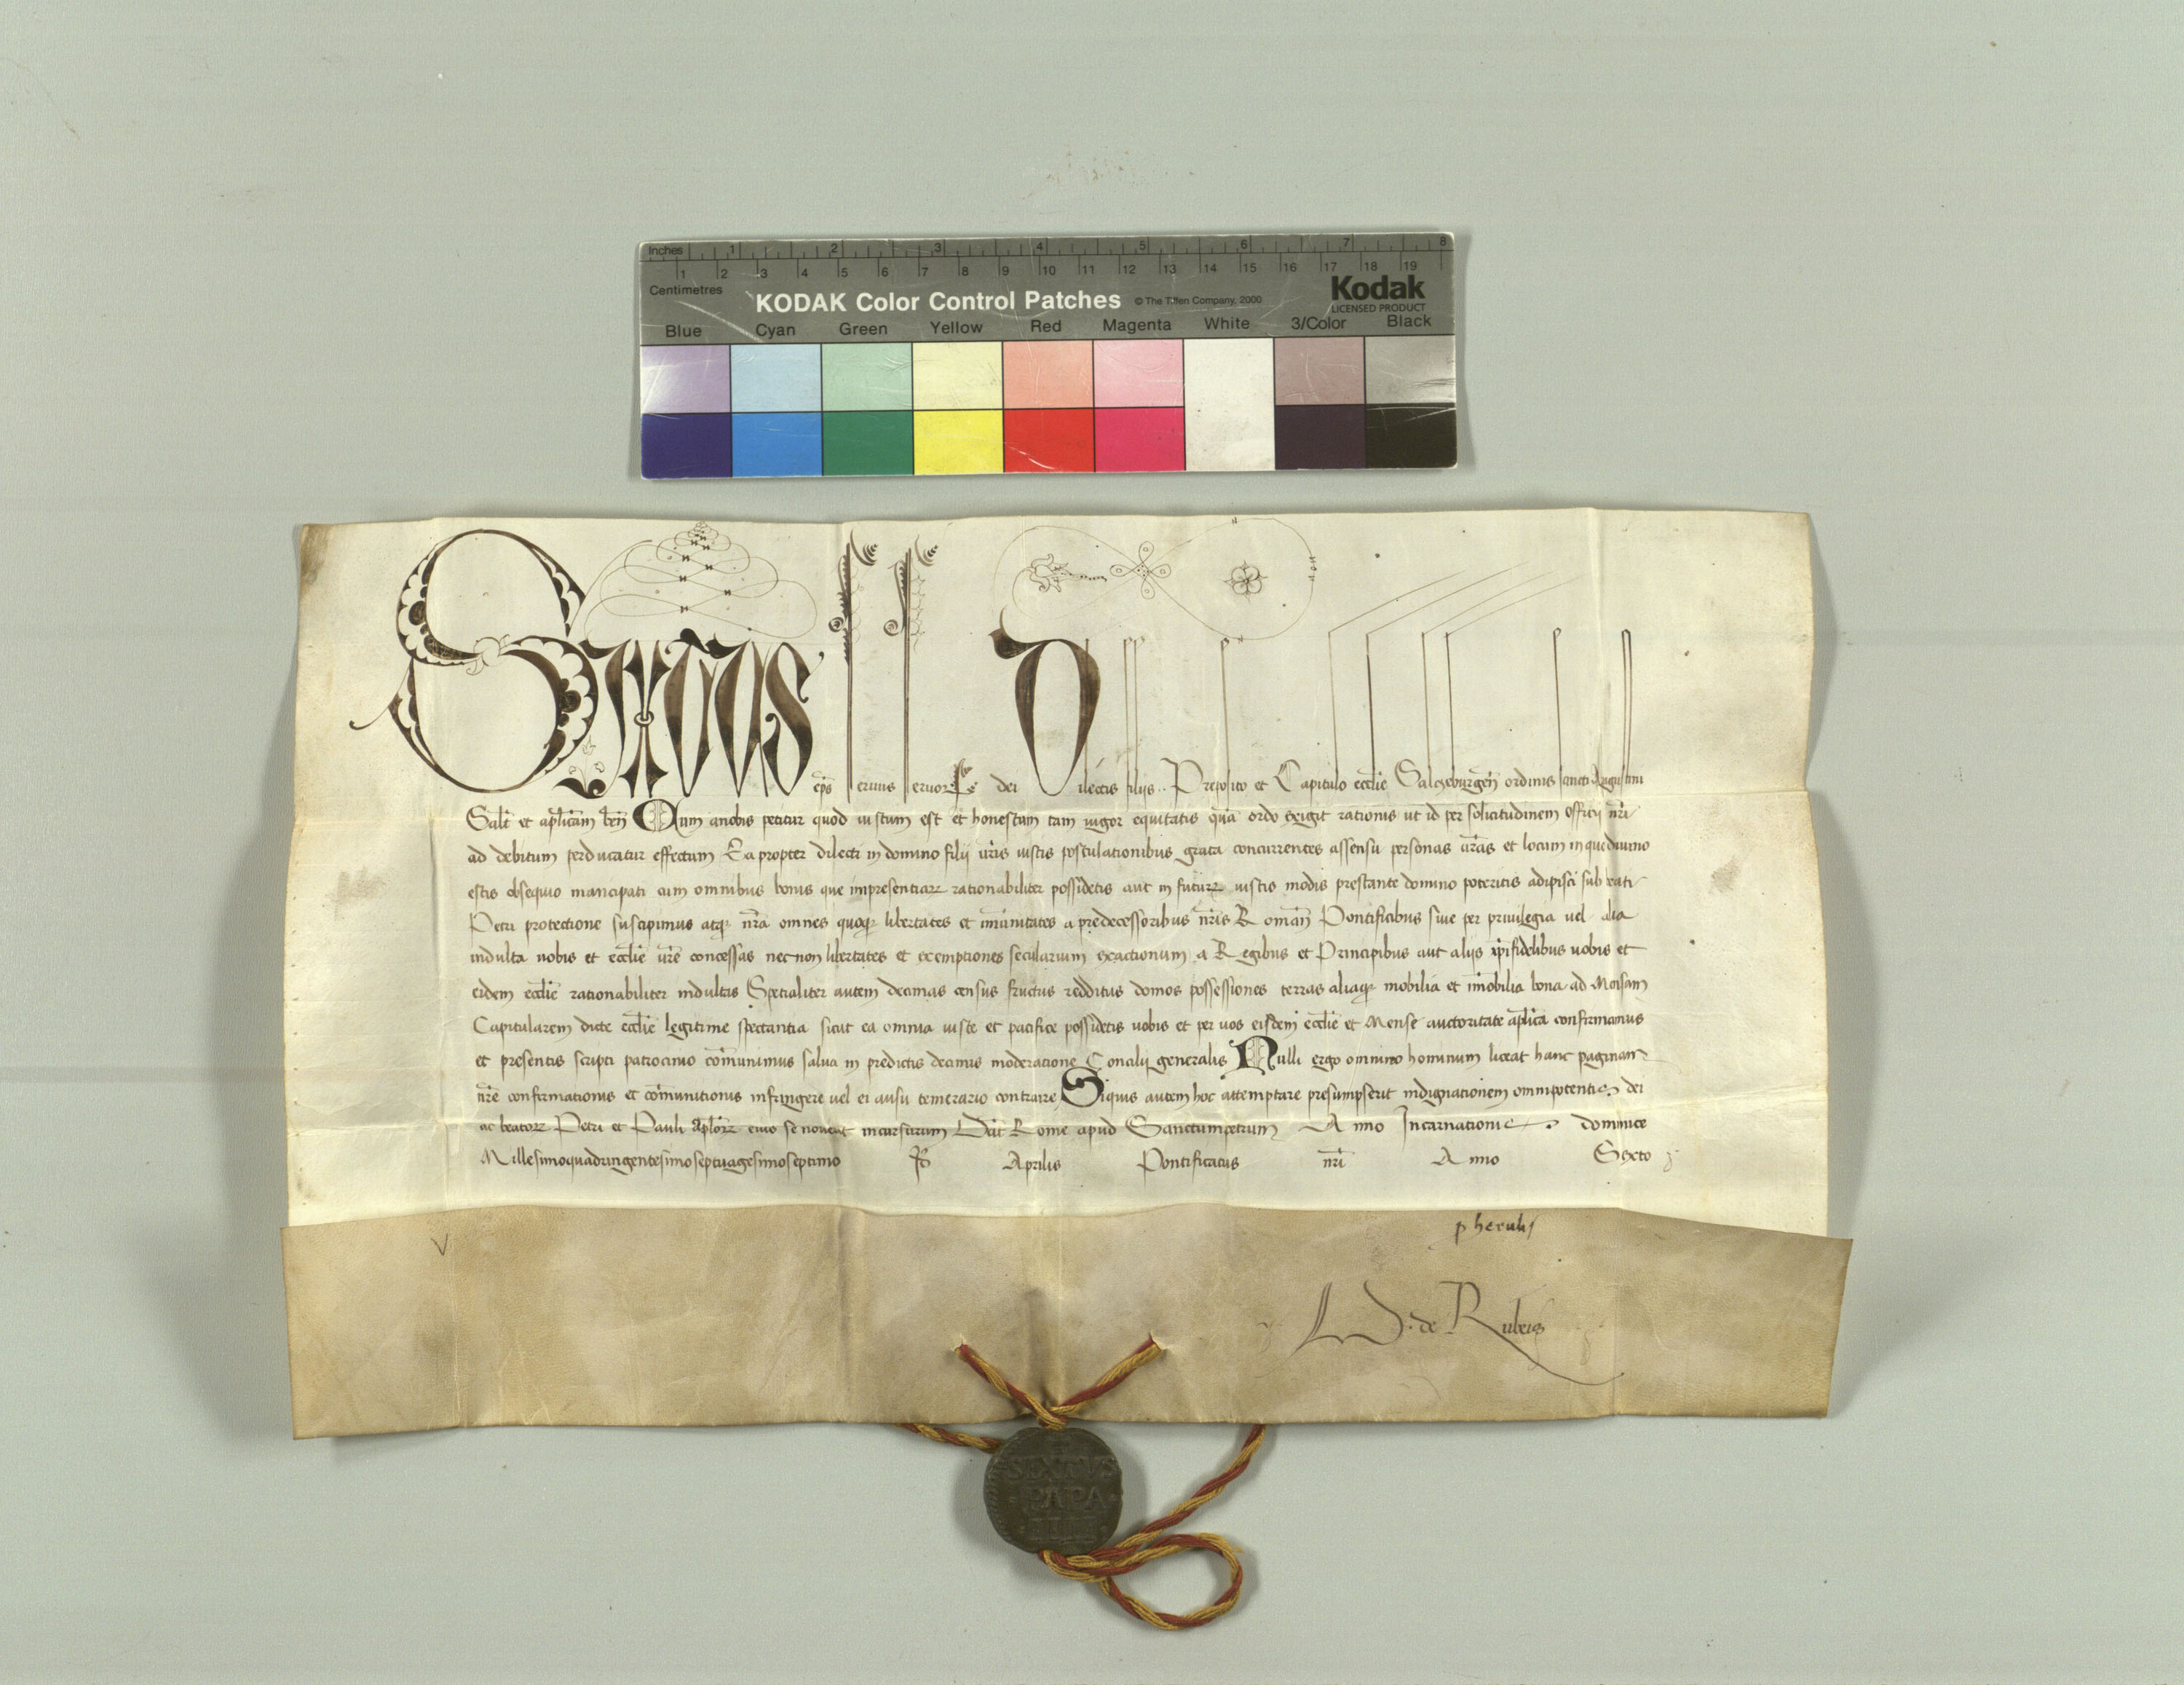 Inches 1 2 3 4 5 6 7 8
1 2 3 4 5 6 7 8 9 10 11 12 13 14 15 16 17 18 19
Centimetres
KODAK Color Control Patches © The Tiffen Company, 2000 Kodak
LICENSED PRODUCT
Blue Cyan Green Yellow Red Magenta White 3/Color Black
Sixtus ep̄s seruus seruoꝝ dei Dilectis filijs .. Preposito et Capitulo eccl̄ie Salczeburgeñ ordinis sancti Augustini
Salt̄ et ap̄licam ben̄ Cum anobis petitur quod iustum est et honestum tam uigor equitatis quā ordo exigit rationis ut id per solicitudinem officij nr̄i
ad debitum perducatur effectum Eapropter dilecti in domino filij ur̄is iustis postulationibus grata concurrentes assensu personas ur̄as et locum in quo diuino
estis obsequio mancipati cum omnibus bonis que impresentiaꝝ rationabiliter possidetis aut in futuꝝ iustis modis prestante domino poteritis adipisci sub beati
Petri protectione suscipimus atqꝫ nr̄a omnes quoqꝫ libertates et im̄unitates a predecessoribus nr̄is Romañ Pontificibus siue per priuilegia uel alia
indulta uobis et eccl̄ie ur̄e concessas necnon libertates et exemptiones secularium exactionum a Regibus et Principibus aut alijs xp̄ifidelibus uobis et
eidem eccl̄ie rationabiliter indultas Specialiter autem decimas census fructus redditus domos possessiones terras aliaqꝫ mobilia et im̄obilia bona ad Mensam
Capitularem dicte eccl̄ie legitime spectantia sicut ea omnia iuste et pacifice possidetis uobis et per uos eisdem eccl̄ie et Mense auctoritate ap̄lica confirmamus
et presentis scripti patrocinio com̄unimus salua in predictis decimis moderatione Concilij generalis Nulli ergo omnino hominum liceat hanc paginam
nr̄e confirmationis et com̄unitionis infringere uel ei ausu temerario contraire Siquis autem hoc attemptare presumpserit indignationem omnipotentis dei
ac beatoꝝ Petri et Pauli Ap̄loꝝ eius se nouerit incursurum Dat̄ Rome apud Sanctumpetrum Anno Incarnationis dominice
Millesimoquadringentesimoseptuagesimoseptimo Aprilis Pontificatus nr̄i Anno Sexto
L. D. de Rubeis
SIXTVS
PAPA
IIII